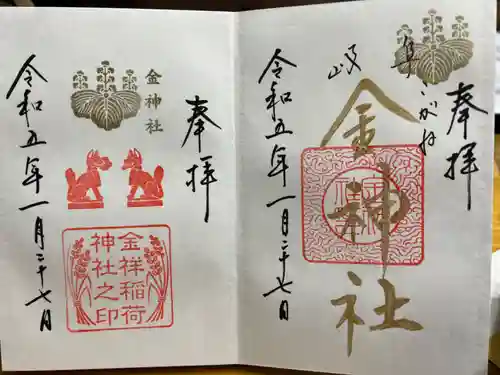 奉拝
岐阜 こがね
金神社
令和五年一月二十七日
奉拝
金神社
金祥稲荷
神社之印
令和五年一月二十七日